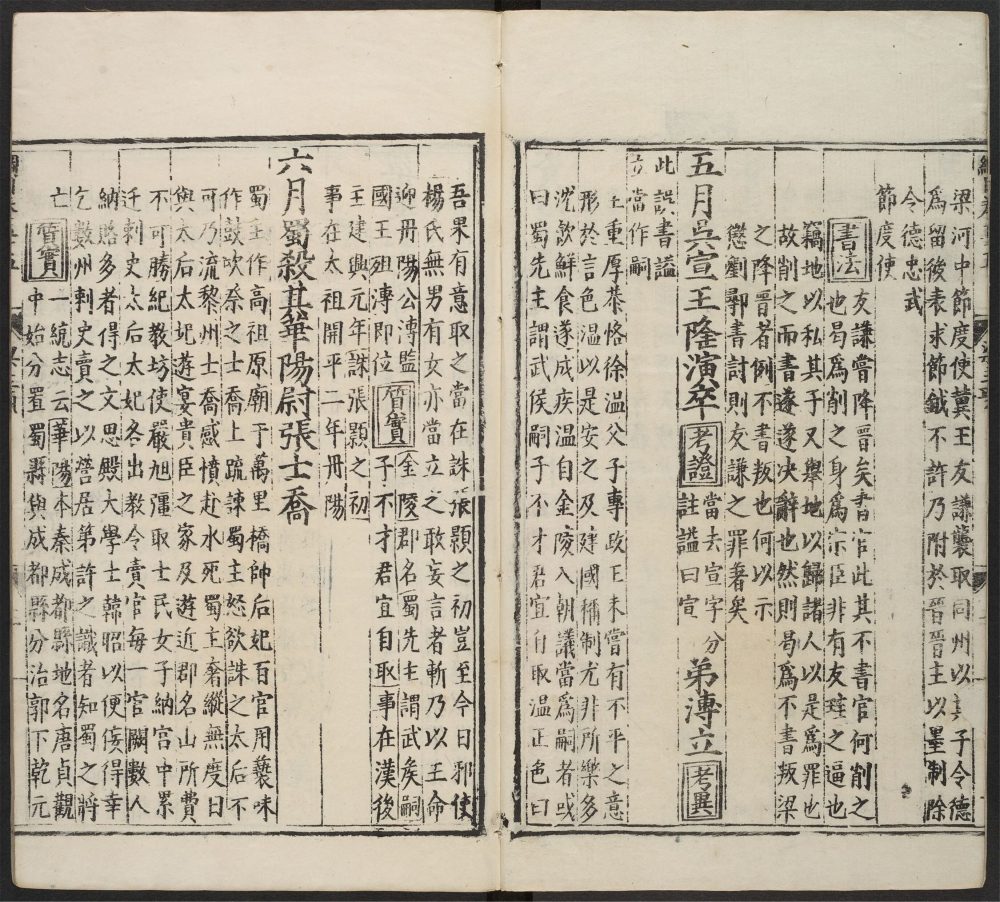 梁河中節度使冀王友謙襲取同州以其子令德
爲留後表求節鉞不許乃附於晉晉主以墨制除
令德忠武
節度使
書法 友謙嘗降晉矣書官此其不書官何削之
也曷爲削之身爲宗臣非有友珪之逼也
竊地以私其子又舉地以歸諸人以是爲罪也
故削之而書遂遂決辭也然則曷爲不書叛梁
之降晉者例不書叛也何以示
懲劉鄩書討則友謙之罪著矣
五月吳宣王隆演卒 考證 當去宣字分註諡曰宣 弟溥立 考異
此誤書諡
立當作嗣
王重厚恭恪徐溫父子專政王未嘗有不平之意
形於言色溫以是安之及建國稱制尤非所樂多
沈飲鮮食遂成疾溫自金陵入朝議當爲嗣者或
曰蜀先主謂武侯嗣子不才君宜自取溫正色曰
吾果有意取之當在誅張顥之初豈至今日邪使
楊氏無男有女亦當立之敢妄言者斬乃以王命
迎丹陽公溥監
國王殂溥即位 質實 金陵郡名蜀先主謂武矦嗣
子不才君宜自取事在漢後
主建興元年誅張顥之初
事在太祖開平二年丹陽
六月蜀殺其華陽尉張士喬
蜀主作高祖原廟于萬里橋帥后妃百官用褻味
作鼓吹祭之士喬上疏諫蜀主怒欲誅之太后不
可乃流黎州士喬感憤赴水死蜀主奢縱無度日
與太后太妃遊宴貴臣之家及遊近郡名山所費
不可勝紀教坊使嚴旭彊取士民女子納宮中累
迁刺史太后太妃各出教令賣官每一官闕數人
納賂多者得之文思殿大學士韓昭以便佞得幸
乞數州刺史賣之以營居第許之識者知蜀之將
亡 質實 一統志云華陽本秦成都縣地名唐貞觀
中始分置蜀縣與成都縣分治郭下乾元